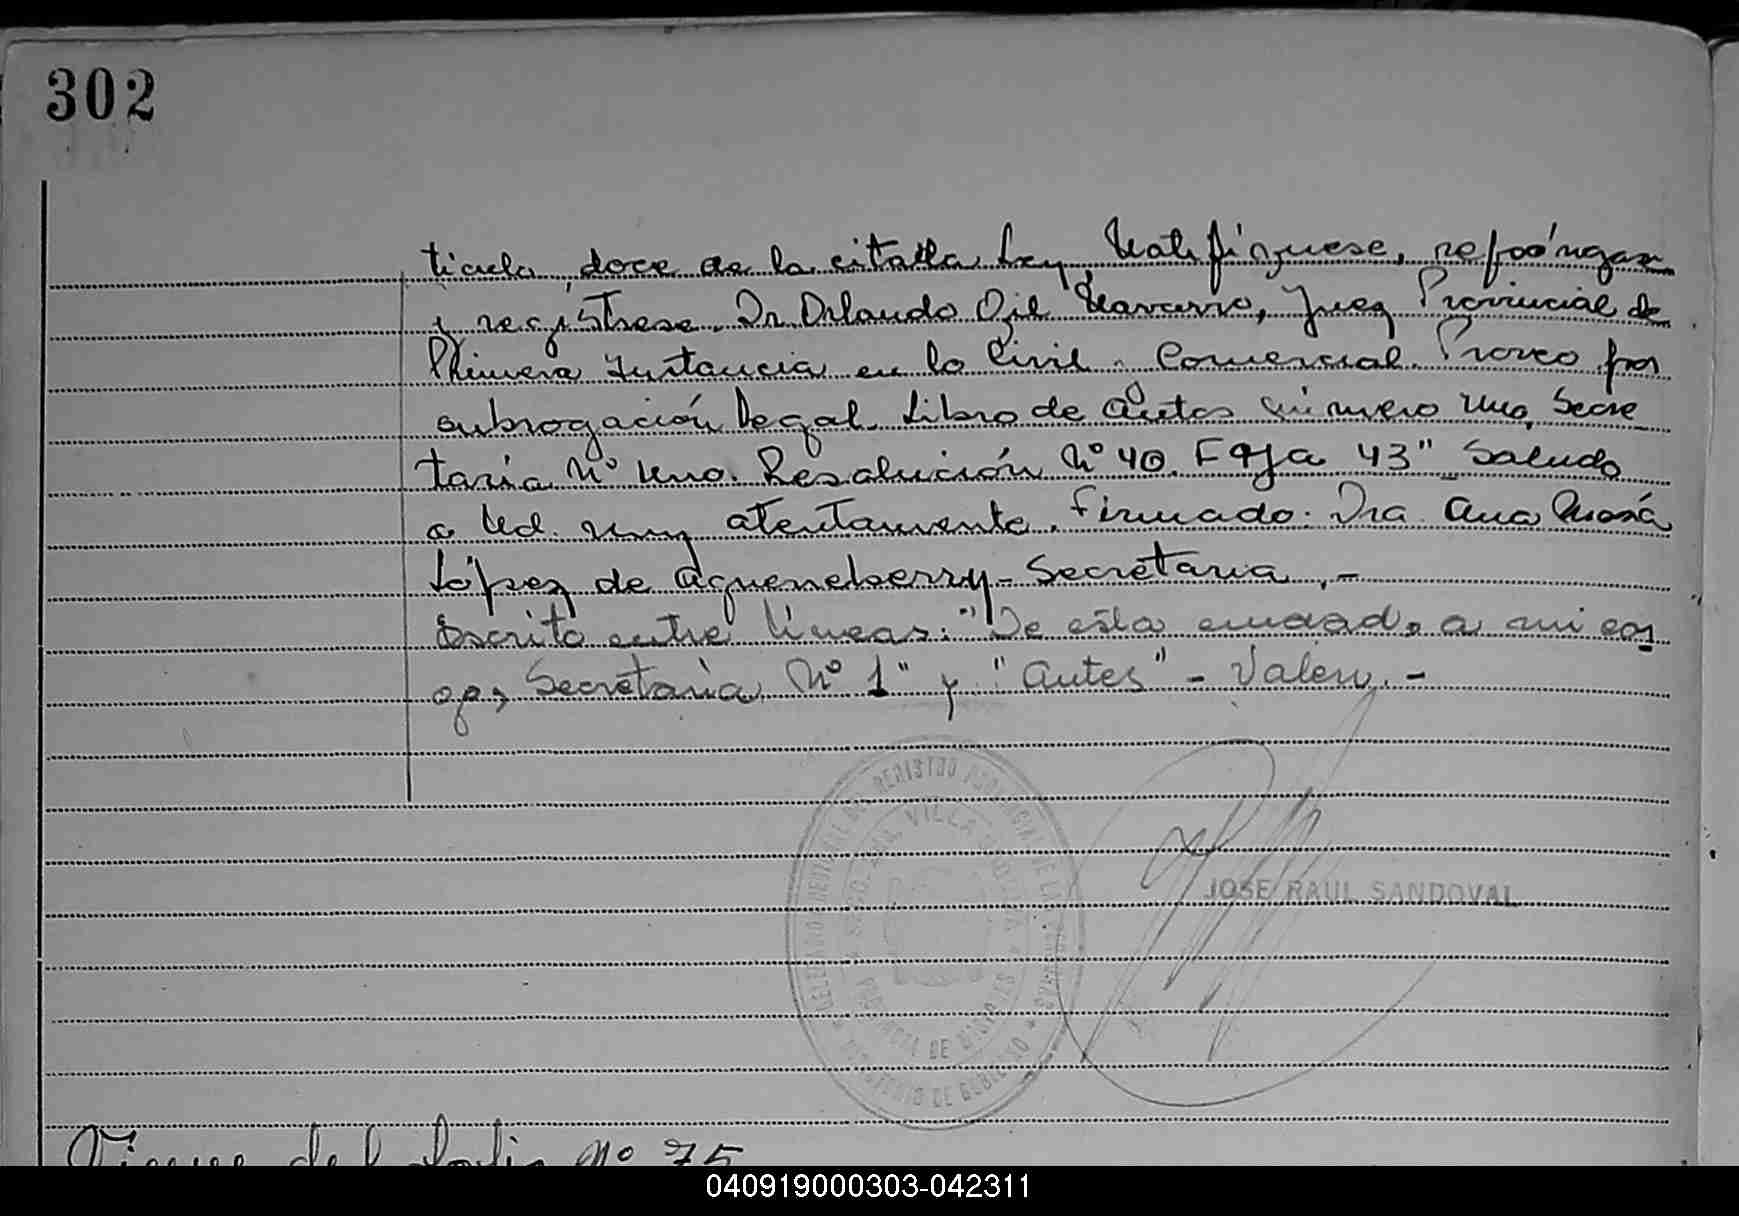 302
ticulo doce de la citada Ley, Notifíquese, repóngase
y regístrese. Dr. Orlando Gil Navarro, Juez Provincial de
Primera Instancia en lo Civil. Comercial. Proveo por
subrogación legal. Libro de Autos número Uno, Secre
taria Nº Uno. Resolución Nº 40. Foja 43" Saludo
a Ud. muy atentamente. Firmado: Dra. Ana María
López de Agueneberry - Secretaria .-
Escrito entre líneas: "De esta ciudad, a mi car
go, Secretaria Nº 1" y "Autos" - Valen.-
VILLA
PROVINCIA DE
JOSE RAUL SANDOVAL
Viene del folio Nº 75
040919000303-042311